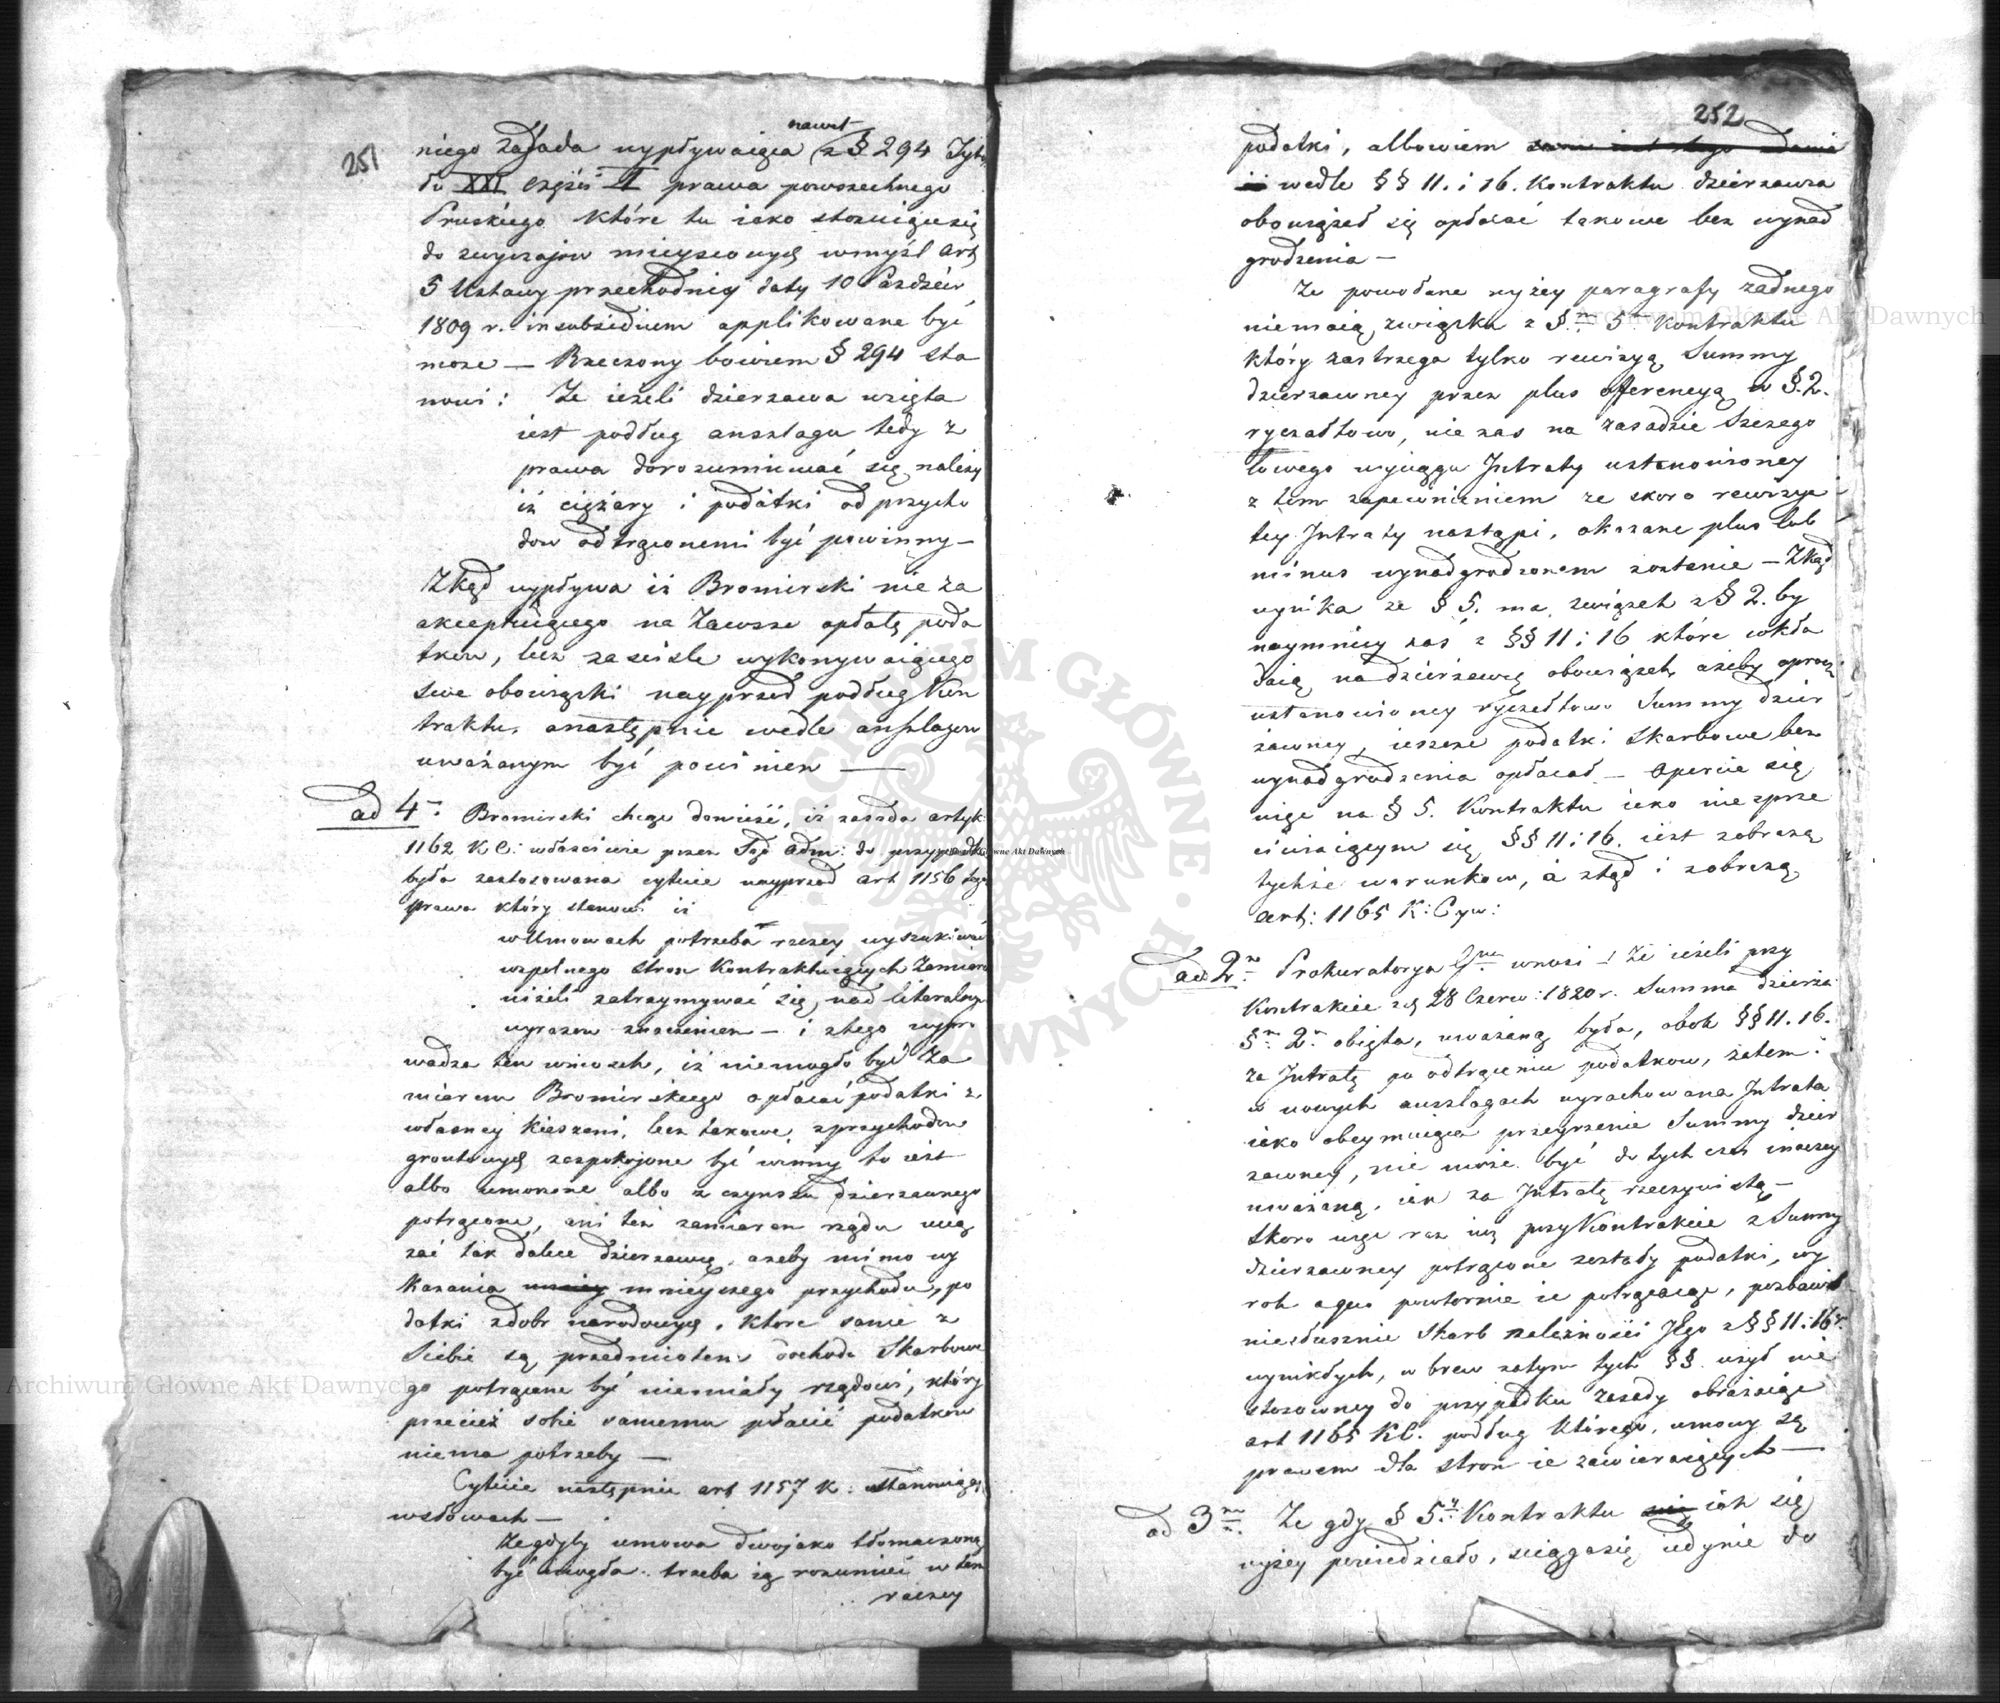 251
nawet
niego zasada wypływaiąca z § 294 Tytu
łu XXI części II prawa powszechnego
Pruskiego które tu iako stosuiące się
do zwyczajow mieyscowych wmyśl art
5 Ustawy przechodniey daty 10 Paźdźier
1809 r. insubsidium applikowane być
moze — Rzeczony bowiem § 294 sta
nowi: Ze ieżeli dzierzawa wzięta
iest podług anszlagu tedy z
prawa dorozumiewać się należy
iż cięźary i podatki od przycho
dow odtrąconemi być powinny —
Zkąd wypływa iż Bromirski nie za
akceptuiącego na Zawsze opłatę poda
tkow, lecz za ściśle wykonywaiącego
swe obowiązki nayprzod podług Kon
traktu, a następnie wedle anszlagow
uważanym być powinien —
ad 4. Bromirski chcąc dowieść, iż zasada artyk:
1162 K C: właściwie przez Sąd Adm: do przypadku
była zastosowana cytuie nayprzod art 1156 tegoż
prawa który stanowi iż
w Umowach potrzeba rzczey wyszukiwać
wspolnego stron Kontraktuiących Zamiaru
niżeli zatrzymywać się nad literalnym
wyrazow znaczeniem — i ztego wypro
wadza ten wniosek, iż niemogło być Za
miarem Bromirskiego opłacać podatki z
własney kieszeni, lecz takowe zprzychodow
grontowych zaspokojone być winny to iest
albo umorzone albo z czynszu dzierzawnego
potrącone, ani też zamiarem rządu uciąz
żać tak dalece dzierzawcę, ażeby mimo wy
kazania mnieyszego przychodu, po
datki zdobr narodowych, ktore same z
siebie są przedmiotem dochodu Skarbowe
go potrącone być niemiały rządowi, który
przecież sobie samemu płacić podatkow
niema potrzeby —
Cytuie następnie art 1157 K: stanowiący
wsłowach —
Ze gdyby umowa dwojako tłomaczoną
być mogła trzeba ią rozumieć w tem
raczey
252
podatki, albowiem
wedle §§ 11. i 16. Kontraktu dzierzawca
obowiązał się opłacać takowe bez wynad
grodzenia —
Ze powołane wyżey paragrafy zadnego
niemaią związku z §. 5 Kontraktu
który zastrzega tylko rewizyą Summy
dzierzawney przez plus offerencyą w §. 2.
ryczałtowo, nie zas na zasadzie Szczego
łowego wyciągu Intraty ustanowioney
z tem zapewnieniem ze skoro rewizya
tey Intraty nastąpi, okazane plus lub
minus wynadgrodzonem zostanie — Zkąd
wynika ze § 5. ma związek z § 2. by
naymniey zaś z §§ 11 i 16 które wkła
daią na dzierżawcę obowiązek ażeby oprocz
ustanowioney ryczałtowo Summy dzier
żawney, ieszcze podatki Skarbowe bez
wynadgrodzenia opłacał — Oparcie się
więc na § 5. Kontraktu iako nie sprze
ciwiaiącym się §§ 11 i 16. iest zobrazą
tychże warunkow, a ztąd i zobrazą
art: 1165 K: Cyw:
ad 2. Prokuratorya wnosi — Ze ieżeli przy
Kontrakcie z 28 Czerw: 1820 r. Summa dzierża:
§ 2. obięta, uważaną była, obok §§ 11. 16.
za Intratę po odtrąceniu podatkow, zatem i
w nowych anszlagach wyrachowana Intrata
iako obeymuiąca przeyrzenie Summy dzier
zawney, nie może być do tych czas inaczey
uważaną, iak za Intratę rzeczywistą —
Skoro więc raz iuż przy Kontrakcie z Summy
dzierzawney potrącone zostały podatki, wy
rok a quo powtornie ie potrącaiąc, pozbawił
niesłusznie Skarb należności Jego z §§ 11 i 16
wynikłych, w brew zatym tych §§. użył nie
stosowney do przypadku zasady obrażaiąc
art 1165 KC. podług którego, umowy są
prawem dla stron ie zawieraiących —
ad 3. Ze gdy § 5. Kontraktu iak się
wyżey powiedziało, sciąga się iedynie do
Archiwum Główne Akt Dawnych
Archiwum Główne Akt Dawnych
Archiwum Główne Akt Dawnych
ARCHIWUM GŁÓWNE AKT DAWNYCH